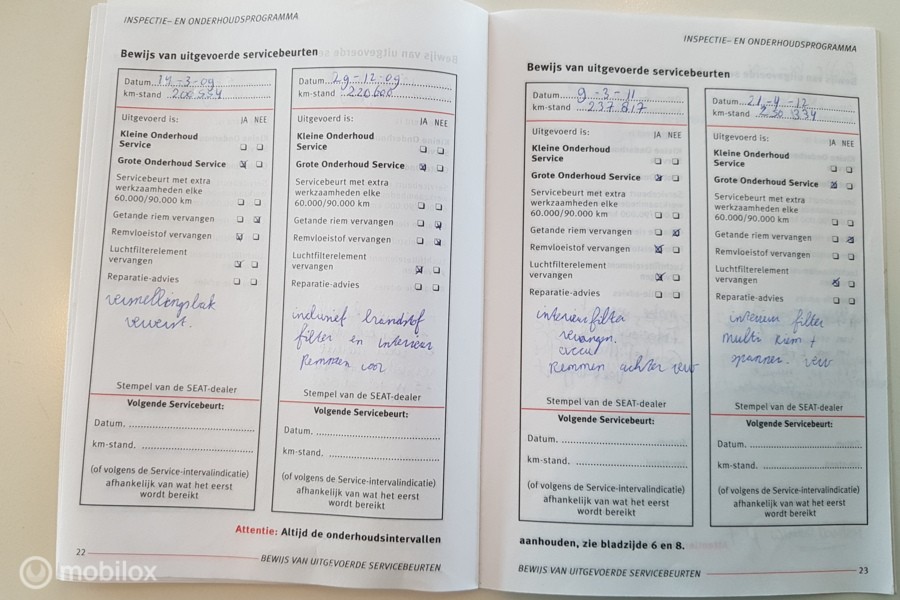 INSPECTIE– EN ONDERHOUDSPROGRAMMA
Bewijs van uitgevoerde servicebeurten
Datum... 19-3-09
km-stand
Uitgevoerd is: JA NEE
Kleine Onderhoud
Service
Grote Onderhoud Service
Servicebeurt met extra
werkzaamheden elke
60.000/90.000 km
Getande riem vervangen
Remvloeistof vervangen
Luchtfilterelement
vervangen
Reparatie-advies
Stempel van de SEAT-dealer
Volgende Servicebeurt:
Datum.
km-stand.
(of volgens de Service-intervalindicatie)
afhankelijk van wat het eerst
wordt bereikt
Datum... 29-12-09
km-stand 220600
Uitgevoerd is: JA NEE
Kleine Onderhoud
Service
Grote Onderhoud Service
Servicebeurt met extra
werkzaamheden elke
60.000/90.000 km
Getande riem vervangen
Remvloeistof vervangen
Luchtfilterelement
vervangen
Reparatie-advies
inclusief brandstof
filter en interieur
Remmen voor
Stempel van de SEAT-dealer
Volgende Servicebeurt:
Datum.
km-stand.
(of volgens de Service-intervalindicatie)
afhankelijk van wat het eerst
wordt bereikt
Attentie: Altijd de onderhoudsintervallen
22
BEWIJS VAN UITGEVOERDE SERVICEBEURTEN
mobilox
INSPECTIE– EN ONDERHOUDSPROGRAMMA
Bewijs van uitgevoerde servicebeurten
Datum... 9-3-11
km-stand 237.817
Uitgevoerd is: JA NEE
Kleine Onderhoud
Service
Grote Onderhoud Service
Servicebeurt met extra
werkzaamheden elke
60.000/90.000 km
Getande riem vervangen
Remvloeistof vervangen
Luchtfilterelement
vervangen
Reparatie-advies
interieurfilter
vervangen.
accu
Remmen achter verv
Stempel van de SEAT-dealer
Volgende Servicebeurt:
Datum.
km-stand.
(of volgens de Service-intervalindicatie)
afhankelijk van wat het eerst
wordt bereikt
Datum... 21-4-12
km-stand
Uitgevoerd is: JA NEE
Kleine Onderhoud
Service
Grote Onderhoud Service
Servicebeurt met extra
werkzaamheden elke
60.000/90.000 km
Getande riem vervangen
Remvloeistof vervangen
Luchtfilterelement
vervangen
Reparatie-advies
interieur filter
multi riem +
spanner. verv
Stempel van de SEAT-dealer
Volgende Servicebeurt:
Datum.
km-stand.
(of volgens de Service-intervalindicatie)
afhankelijk van wat het eerst
wordt bereikt
aanhouden, zie bladzijde 6 en 8.
BEWIJS VAN UITGEVOERDE SERVICEBEURTEN
23